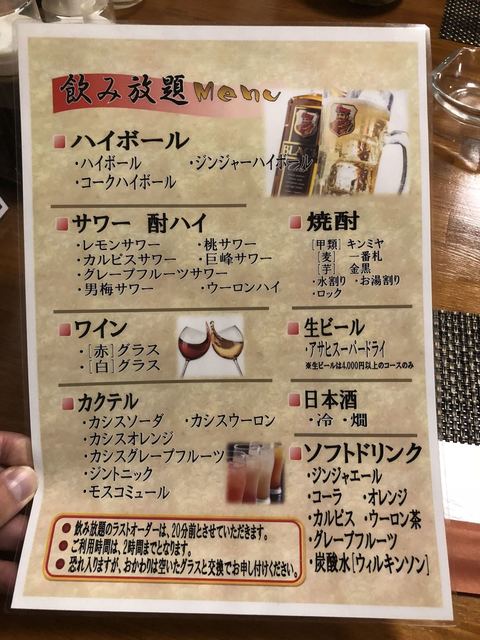 飲み放題Menu
ハイボール
・ハイボール ・ジンジャーハイボール
・コークハイボール
サワー 酎ハイ
・レモンサワー ・桃サワー
・カルピスサワー ・巨峰サワー
・グレープフルーツサワー
・男梅サワー ・ウーロンハイ
焼酎
[甲類] キンミヤ
[麦] 一番札
[芋] 金黒
・水割り ・お湯割り
・ロック
ワイン
・[赤]グラス
・[白]グラス
生ビール
・アサヒスーパードライ
※生ビールは4,000円以上のコースのみ
カクテル
・カシスソーダ ・カシスウーロン
・カシスオレンジ
・カシスグレープフルーツ
・ジントニック
・モスコミュール
日本酒
・冷 ・燗
ソフトドリンク
・ジンジャエール
・コーラ ・オレンジ
・カルピス ・ウーロン茶
・グレープフルーツ
・炭酸水[ウィルキンソン]
● 飲み放題のラストオーダーは、20分前とさせていただきます。
● ご利用時間は、2時間までとなります。
● 恐れ入りますが、おかわりは空いたグラスと交換でお申し付けください。